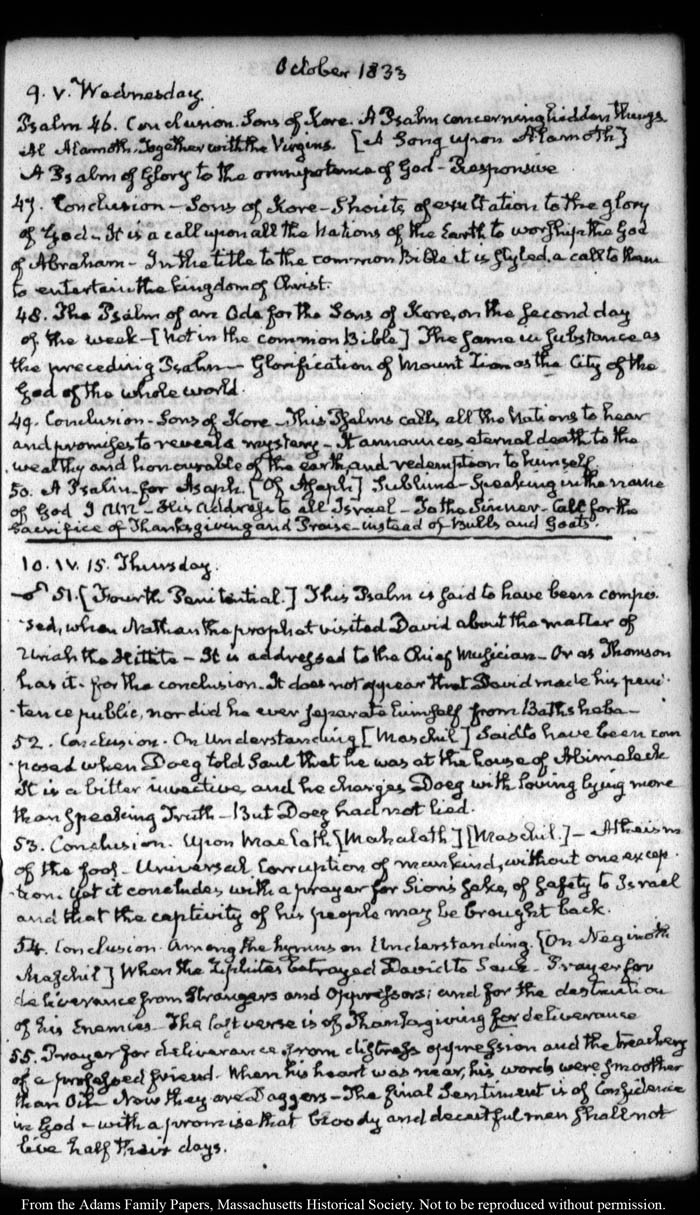 October 1833
9. V. Wednesday.
Psalm 46. Conclusion. Sons of Kore. A Psalm concerning hidden things.
Al Alamoth, Together with the Virgins. [A Song upon Alamoth]
A Psalm of Glory to the omnipotence of God – Responsive
47. Conclusion – Sons of Kore – Shouts of exultation to the glory
of God – It is a call upon all the Nations of the Earth to worship the God
of Abraham – In the title to the common Bible it is styled, a call to them
to entertain the kingdom of Christ.
48. The Psalm of an Ode for the Sons of Kore, on the second day
of the week – [Not in the common Bible] The same in substance as
the preceding Psalm – Glorification of Mount Zion as the City of the
God of the whole world.
49. Conclusion – Sons of Kore – This Psalms calls all the Nations to hear
and promises to reveal a mystery – It announces eternal death to the
wealthy and honourable of the earth, and redemption to himself.
50. A Psalm for Asaph. [Of Asaph] Sublime – Speaking in the name
of God I am – His Address to all Israel – To the Sinner – Call for the
Sacrifice of Thanksgiving and Praise – instead of Bulls and Goats.
10. IV. 15. Thursday.
51. [Fourth Penitential.] This Psalm is said to have been compo
-sed, when Nathan the prophet visited David about the matter of
Uriah the Hittite – It is addressed to the Chief Musician – Or as Thomson
has it – for the conclusion. It does not appear that David made his peni
-tence public, nor did he ever separate himself from Bathsheba –
52. Conclusion. On Understanding [Maschil] Said to have been com
-posed when Doeg told Saul that he was at the house of Abimeleck
It is a bitter invective, and he charges Doeg with loving lying more
than speaking Truth – But Doeg had not lied.
53. Conclusion. Upon Maelath [Mahalath] [Maschil.] – Atheism
of the fool – Universal Corruption of mankind, without one excep
-tion. Yet it concludes with a prayer for Sion's sake, of safety to Israel
and that the captivity of his people may be brought back.
54. Conclusion. Among the hymns on Understanding. [On Neginoth
Maschil] When the Ziphites betrayed David to Saul – Prayer for
deliverance from Strangers and Oppressors; and for the destruction
of his Enemies – The last verse is of Thanksgiving for deliverance
55. Prayer for deliverance from distress oppression and the treachery
of a professed friend. When his heart was near, his words were smoother
than Oil – Now they are Daggers – The final Sentiment is of Confidence
in God – with a promise that bloody and deceitful men shall not
live half their days.
From the Adams Family Papers, Massachusetts Historical Society. Not to be reproduced without permission.